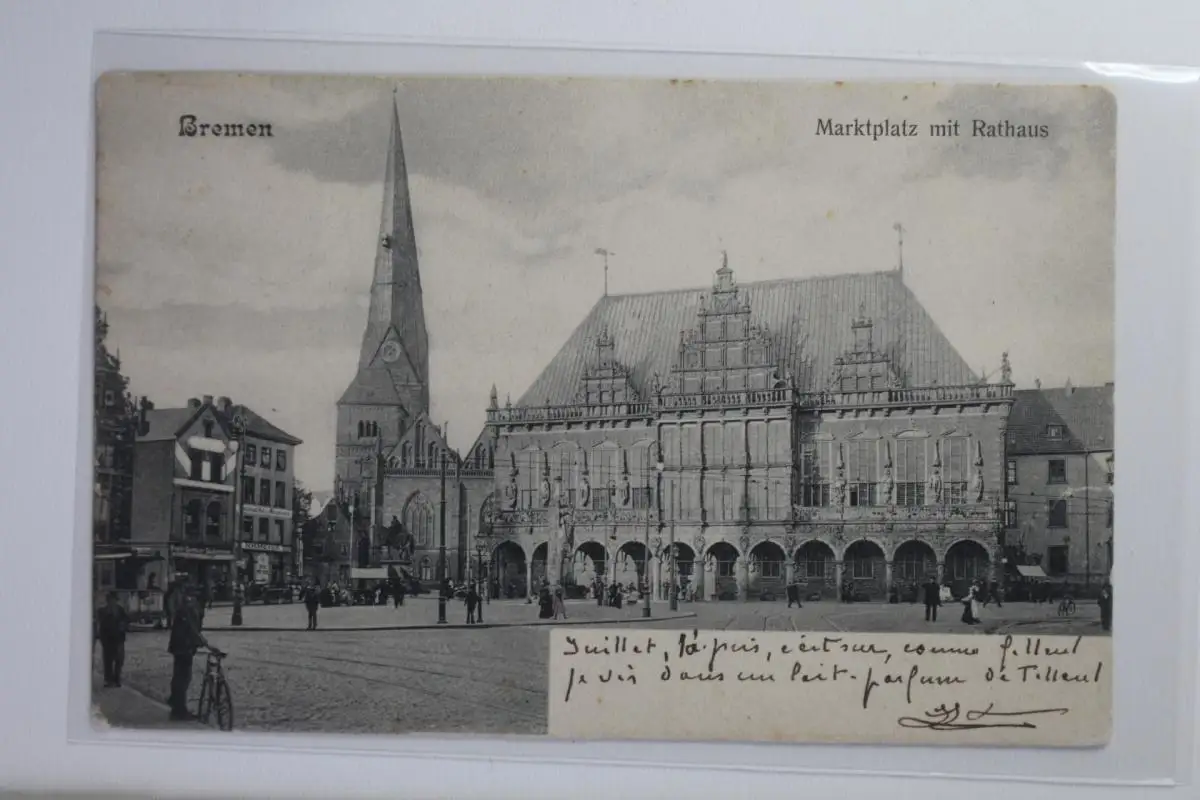 Bremen
Marktplatz mit Rathaus
Juillet, là-puis, c'est sur, comme filleul
je vis dans un lait-parfum de Tilleul